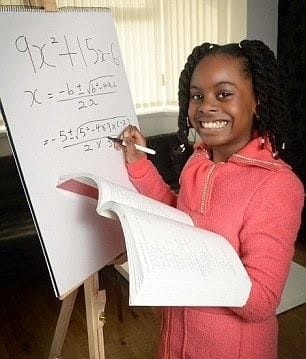 9x²+15x-6
x = -b±√b²-4ac / 2a
= -5±√5²-4×3×(-2) / 2×3